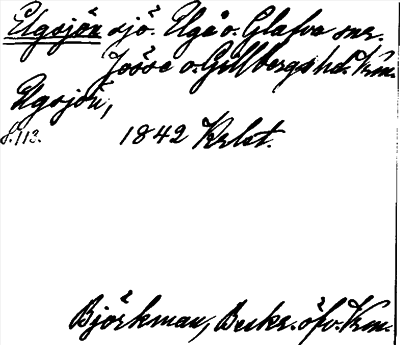 Elgsjön sjö. Elgå o. Glafva snr.
Jösse o. Gillbergs hd. Vrm.
Elgsjön,
s. 113. 1842 Krbst.
Björkman, Beskr. öfv. Vrm.